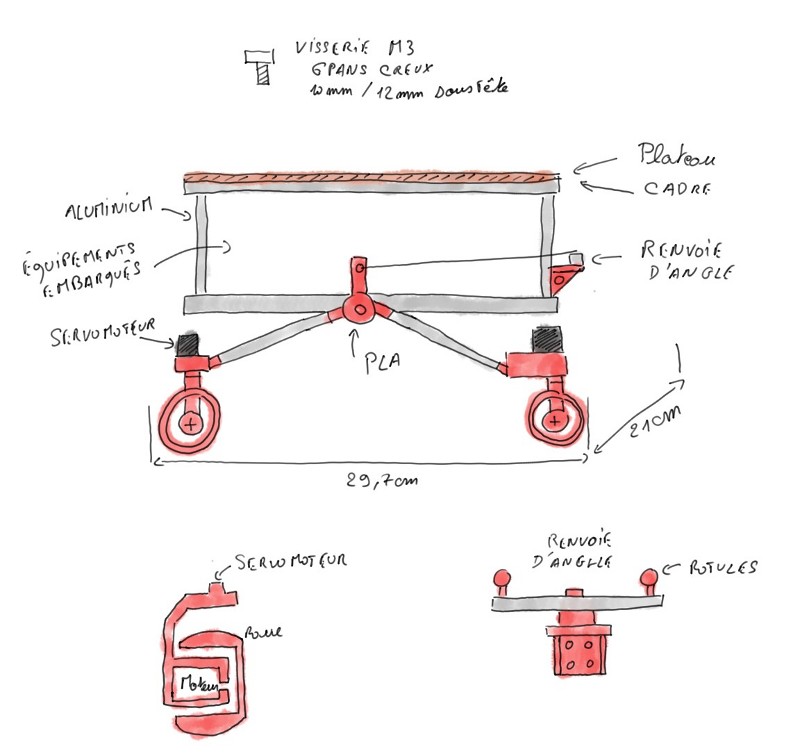 VISSERIE M3
6PANS CREUX
10mm / 12mm Sous Tête
Plateau
CADRE
ALUMINIUM
ÉQUIPEMENTS
EMBARQUÉS
RENVOIE
D'ANGLE
SERVOMOTEUR
PLA
21cm
29,7cm
SERVOMOTEUR
Roue
Moteur
RENVOIE
D'ANGLLE
ROTULES